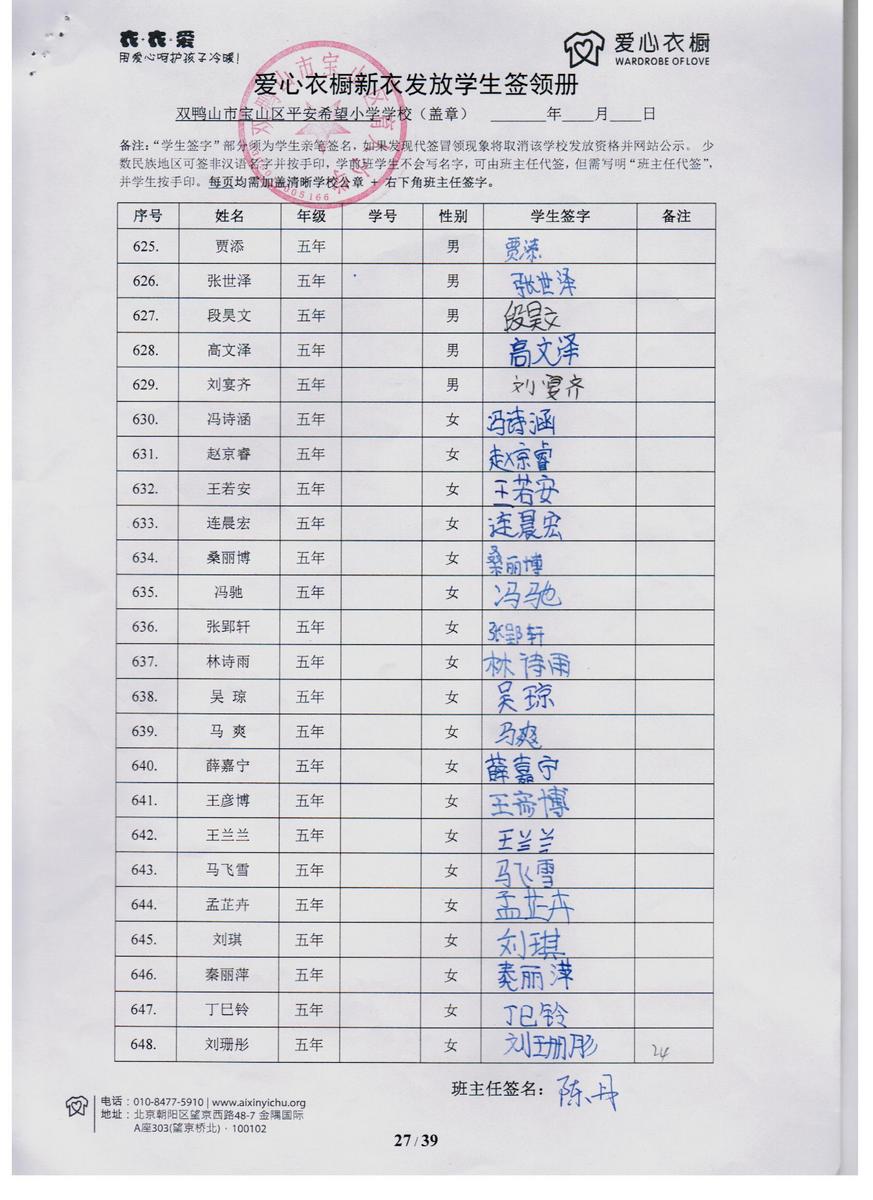 衣·衣·爱
用爱心呵护孩子冷暖!
爱心衣橱
WARDROBE OF LOVE
爱心衣橱新衣发放学生签领册
双鸭山市宝山区平安希望小学学校（盖章） 年 月 日
备注：“学生签字”部分须为学生亲笔签名，如果发现代签冒领现象将取消该学校发放资格并网站公示。 少
数民族地区可签非汉语名字并按手印，学前班学生不会写名字，可由班主任代签，但需写明“班主任代签”，
并学生按手印。每页均需加盖清晰学校公章 + 右下角班主任签字。
序号 姓名 年级 学号 性别 学生签字 备注
625. 贾添 五年 男 贾添
626. 张世泽 五年 男 张世泽
627. 段昊文 五年 男 段昊文
628. 高文泽 五年 男 高文泽
629. 刘宴齐 五年 男 刘宴齐
630. 冯诗涵 五年 女 冯诗涵
631. 赵京睿 五年 女 赵京睿
632. 王若安 五年 女 王若安
633. 连晨宏 五年 女 连晨宏
634. 桑丽博 五年 女 桑丽博
635. 冯驰 五年 女 冯驰
636. 张郢轩 五年 女 张郢轩
637. 林诗雨 五年 女 林诗雨
638. 吴 琼 五年 女 吴琼
639. 马 爽 五年 女 马爽
640. 薛嘉宁 五年 女 薛嘉宁
641. 王彦博 五年 女 王彦博
642. 王兰兰 五年 女 王兰兰
643. 马飞雪 五年 女 马飞雪
644. 孟芷卉 五年 女 孟芷卉
645. 刘琪 五年 女 刘琪
646. 秦丽萍 五年 女 秦丽萍
647. 丁巳铃 五年 女 丁巳铃
648. 刘珊彤 五年 女 刘珊彤 24
班主任签名： 陈丹
电话：010-8477-5910 | www.aixinyichu.org
地址：北京朝阳区望京西路48-7 金隅国际
A座303(望京桥北)·100102
27 / 39